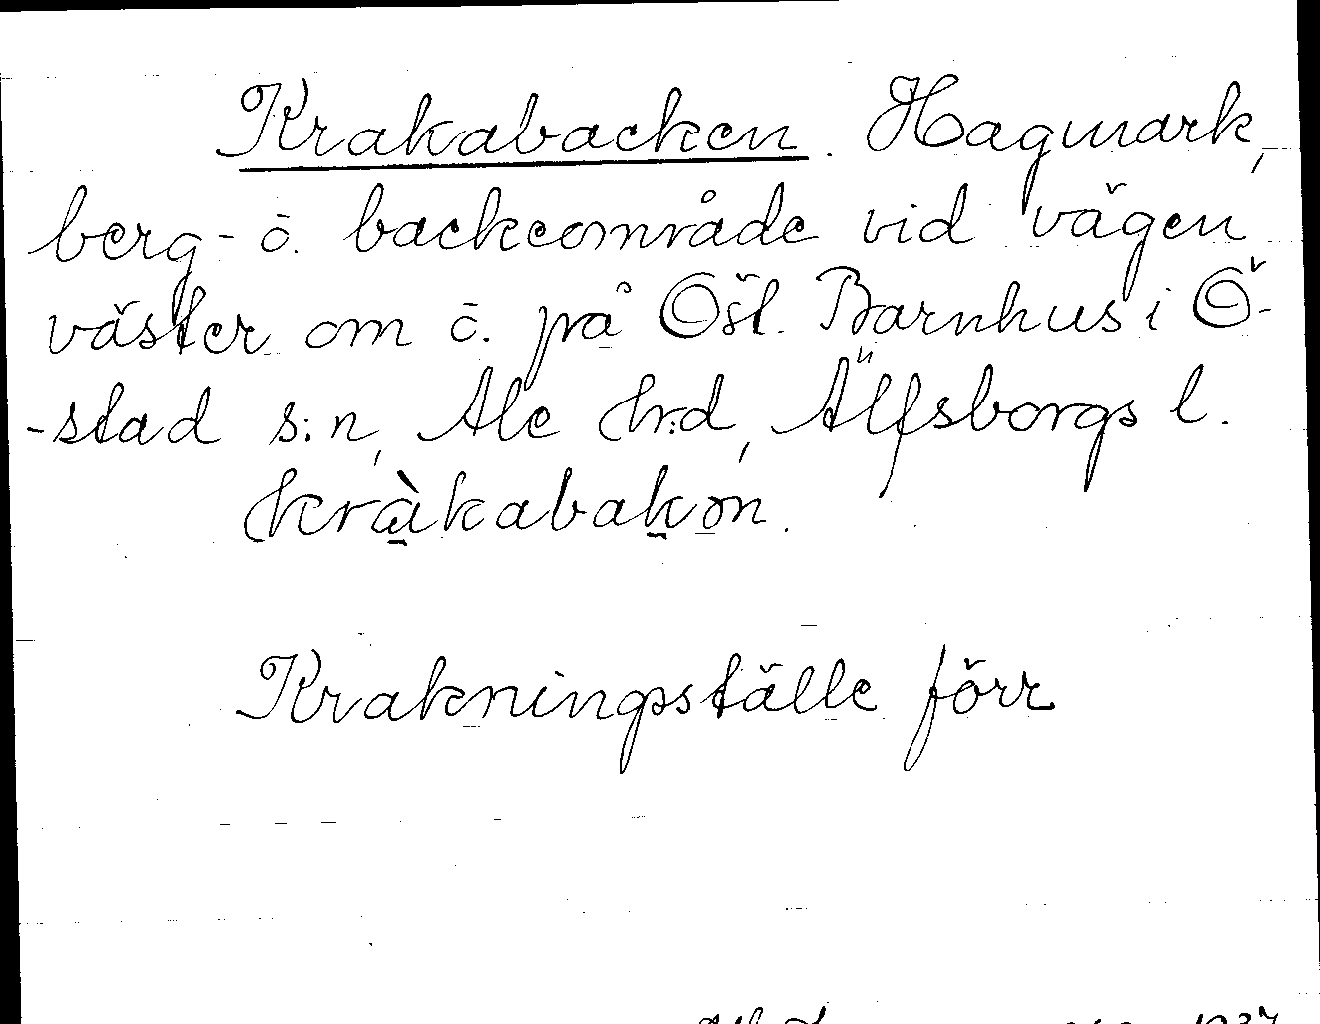 Krakabacken. Hagmark,
berg- o. backeområde vid vägen
väster om o. på Östl. Barnhus i Ö-
-stad s:n, Ale hd, Älfsborgs l.
kràkabakən.
Krakningsställe förr
1937